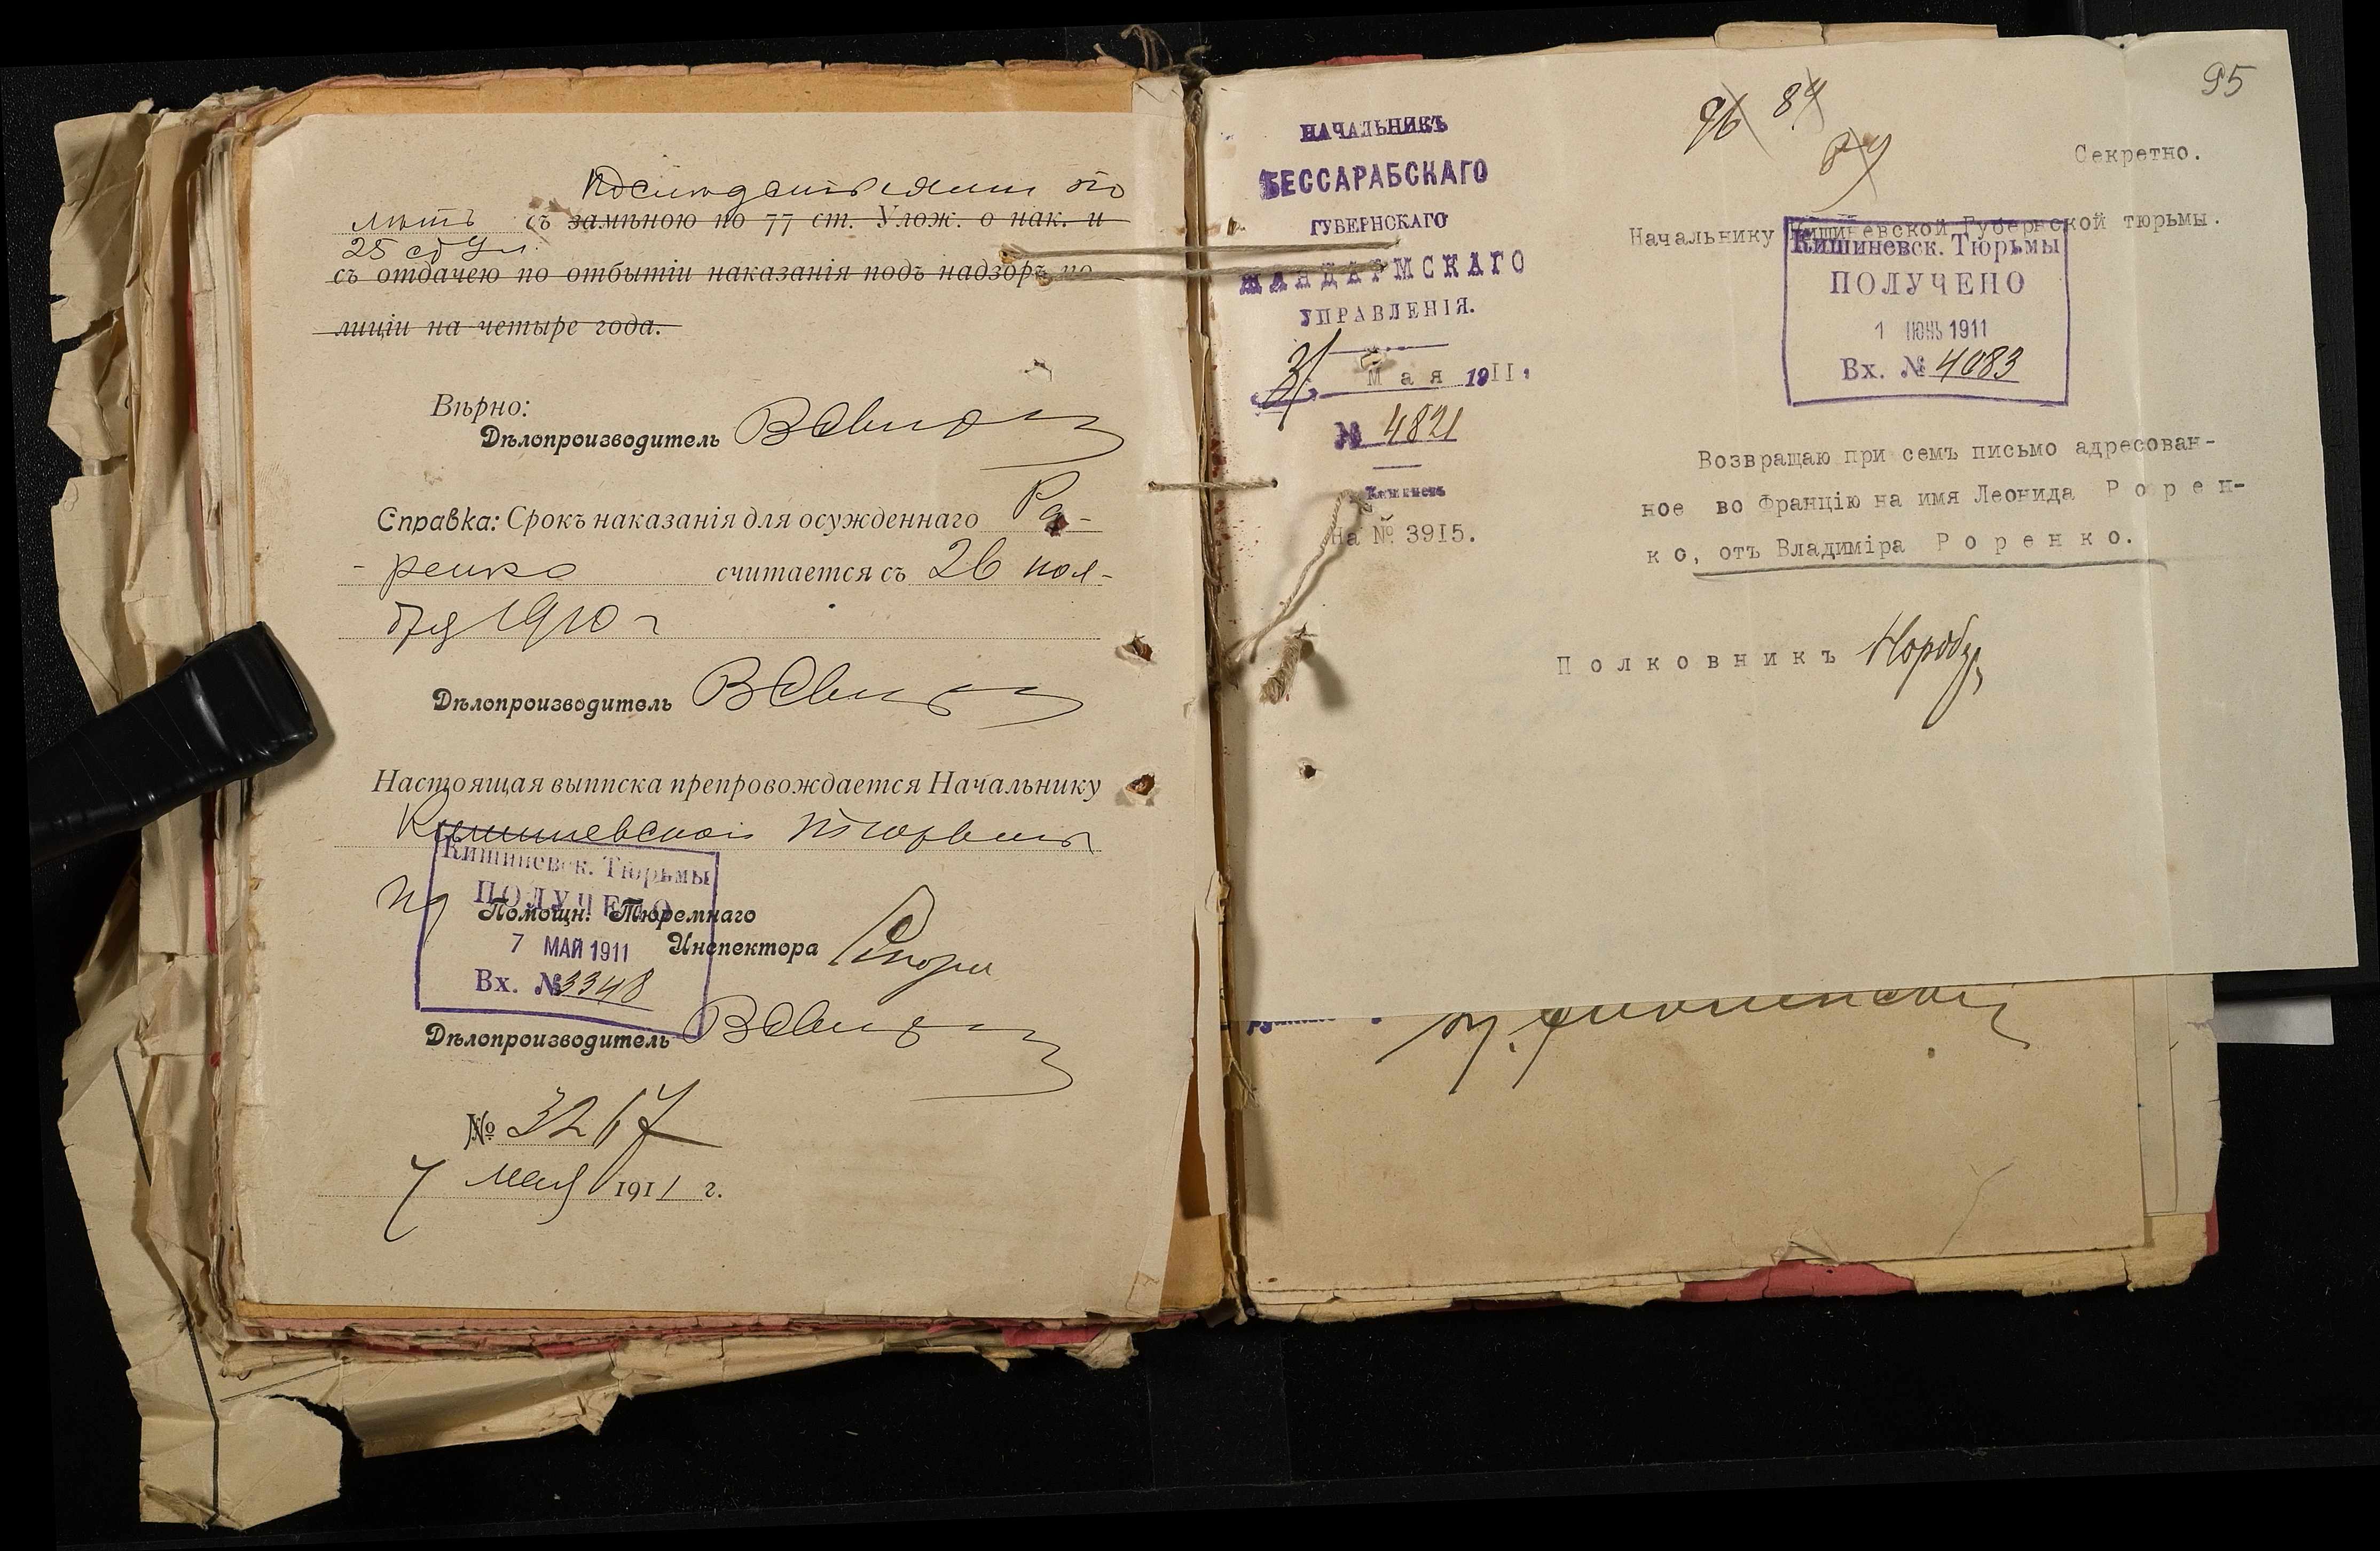 послѣдствіями по
лѣтъ съ замѣною по 77 ст. Улож. о нак. и
25 ст Ул.
съ отдачею по отбытіи наказанія подъ надзоръ по-
лиціи на четыре года.
Вѣрно:
Дѣлопроизводитель
Справка: Срокъ наказанія для осужденнаго Ро-
- ренко считается съ 26 ноя-
бря 1910 г
Дѣлопроизводитель
Настоящая выписка препровождается Начальнику
Кишиневской тюрьмы
Кишиневск. Тюрьмы
ПОЛУЧЕНО
Помощн. Тюремнаго
7 МАЙ 1911
Инспектора
Вх. № 3348
Дѣлопроизводитель
№ 3267
7 мая 1911 г.
95
96 84
Секретно.
НАЧАЛЬНИКЪ
БЕССАРАБСКАГО
ГУБЕРНСКАГО
ЖАНДАРМСКАГО
УПРАВЛЕНІЯ.
31 Мая 1911.
№ 4821
Кишиневъ
На № 3915.
Начальнику Кишиневской Губернской тюрьмы.
Кишиневск. Тюрьмы
ПОЛУЧЕНО
1 ІЮНЬ 1911
Вх. № 4083
Возвращаю при семъ письмо адресован-
ное во Францію на имя Леонида Р о р е н-
к о, отъ Владиміра Р о р е н к о.
П о л к о в н и к ъ